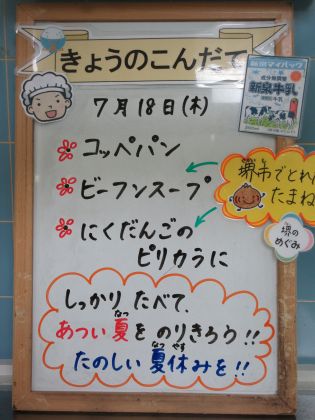 きょうのこんだて
7月18日(木)
コッペパン
ビーフンスープ
にくだんごの
ピリカラに
堺市でとれ
たまね
堺の
めぐみ
新泉牛乳
しっかり たべて、
あつい夏を のりきろう!!
たのしい 夏休みを!!